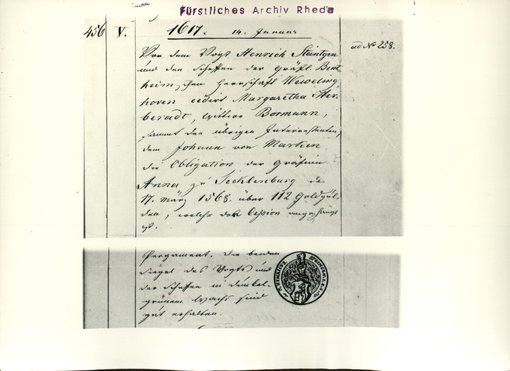 Fürstliches Archiv Rheda
456 V. 1617. 14. Januar
ad No 258.
Vor dem Vogt Henrich Steintgen
und den Scheffen der Gräfl. Bent
heim'schen Herrschaft Weveling
hoven cedirt Margaretha Her-
beradt, Wittwe Bormann,
sammt den übrigen Interessenten,
dem Johann von Marken
die Obligation der Gräfin
Anna zu Tecklenburg de
17. März 1568 über 112 Goldgül-
den, welche der Cession angehängt
ist.
Pergament. Die beiden
Siegel des Vogts und
der Scheffen in dunkel-
grünem Wachs sind
gut erhalten.